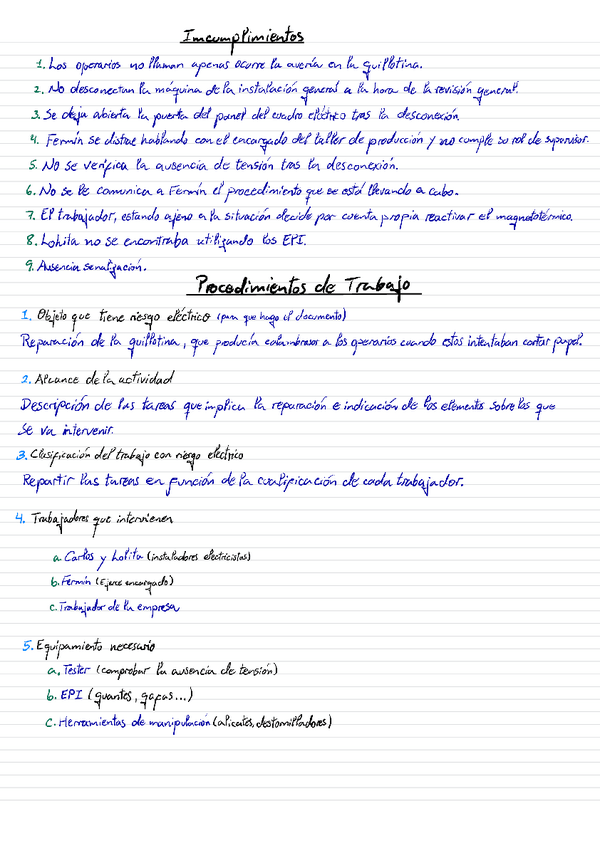 Imcumplimientos
1. Los operarios no llaman apenas ocurre la avería en la guillotina.
2. No desconectan la máquina de la instalación general a la hora de la revisión general.
3. Se deja abierta la puerta del panel del cuadro eléctrico tras la desconexión
4. Fermín se distrae hablando con el encargado del taller de producción y no cumple su rol de supervisor.
5. No se verifica la ausencia de tensión tras la desconexión.
6. No se le comunica a Fermín el procedimiento que se está llevando a cabo.
7. El trabajador, estando ajeno a la situación decide por cuenta propia reactivar el magnetotérmico.
8. Lolita no se encontraba utilizando los EPI.
9. Ausencia señalización.
Procedimientos de Trabajo
1. Objeto que tiene riesgo eléctrico (para que hago el documento)
Reparación de la guillotina, que producía calambrazos a los operarios cuando estos intentaban cortar papel.
2. Alcance de la actividad
Descripción de las tareas que implica la reparación e indicación de los elementos sobre los que
se va intervenir.
3. Clasificación del trabajo con riesgo eléctrico
Repartir las tareas en función de la cualificación de cada trabajador.
4. Trabajadores que intervienen
a. Carlos y Lolita (instaladores electricistas)
b. Fermín (Ejerce encargado)
c. Trabajador de la empresa
5. Equipamiento necesario
a. Tester (comprobar la ausencia de tensión)
b. EPI (guantes, gafas...)
c. Herramientas de manipulación (alicates, destornilladores)